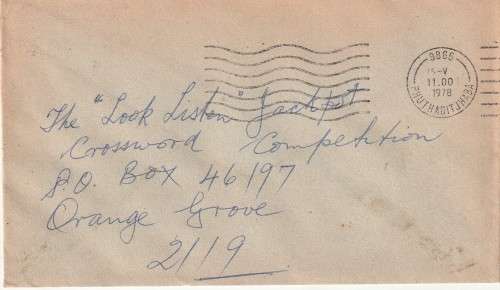 9866
15-V
11.00
1978
PHUTHADITJHABA
The "Look Listen" Jackpot
Crossword Competition
P.O. Box 46197
Orange Grove
2119